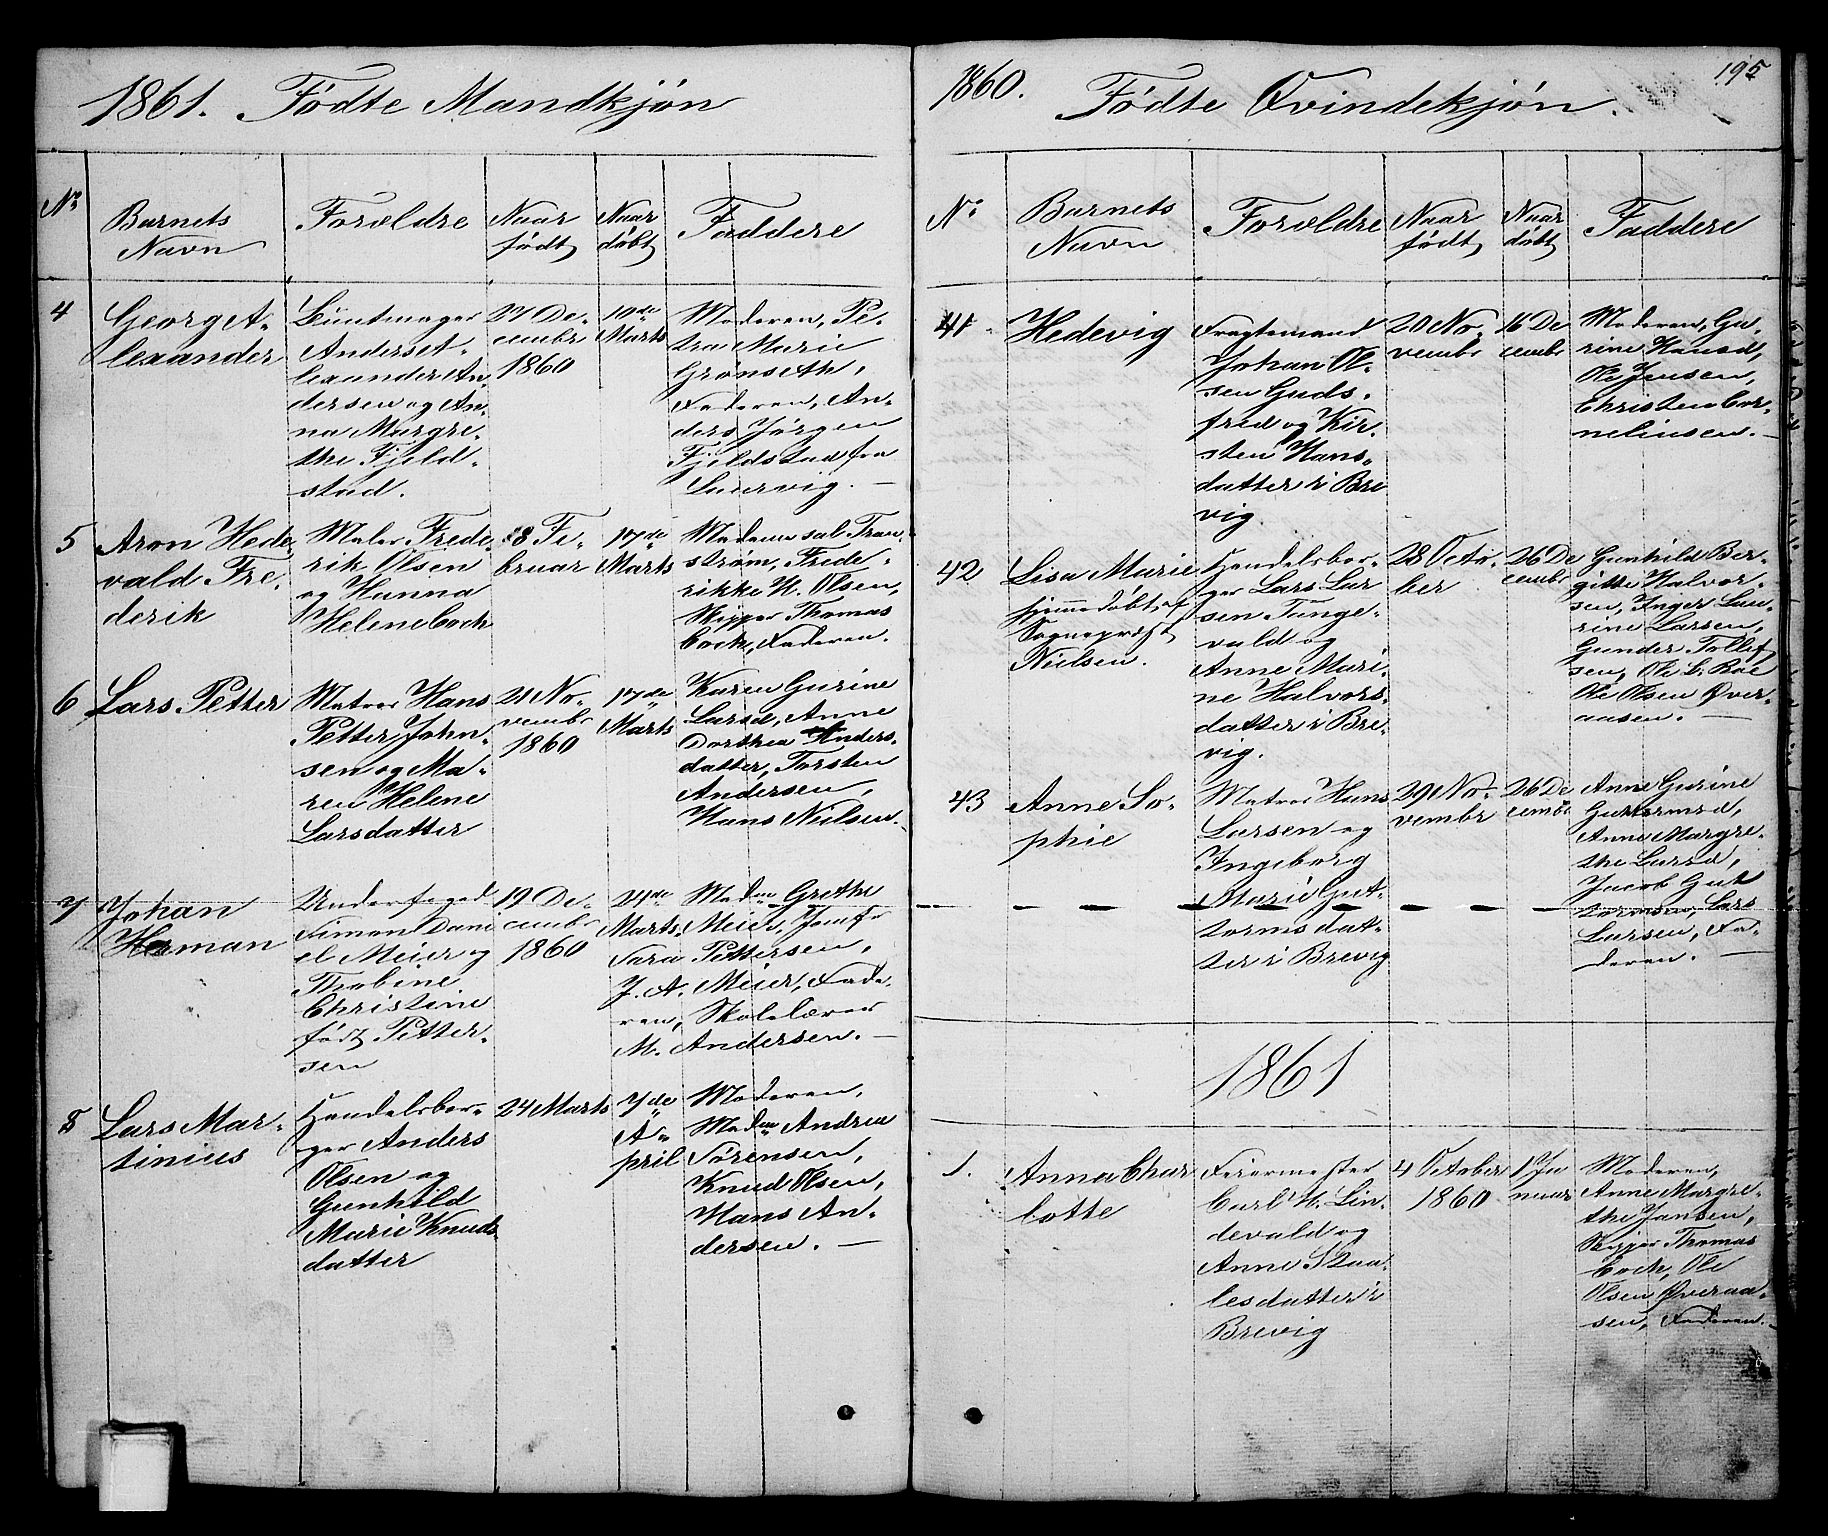 1861. Fødte Mandkjøn
No
Barnets
Navn
Forældre
Naar
født
Naar
døbt
Faddere
4
George A-
lexander
Buntmager
Anders A-
lexander An-
dersen og An-
na Margre-
the Fjeld-
stad.
27 De-
cembr
1860
10de
Marts
Moderen, Pe-
tra Marie
Grønseth,
Faderen, An-
ders Jørgen
Fjeldstad fra
Laurvig. —
5
Aron Hede-
vald Fre-
derik
Maler Frede-
rik Olsen
og Hanna
Helene Cock
8 Fe-
bruar
17de
Marts
Madame sal. Tran-
strøm, Frede-
rikke H. Olsen,
Skipper Thomas
Cock, Faderen.
6
Lars Petter
Matros Hans
Petter John-
sen og Ma-
ren Helene
Larsdatter
21 No-
vembr
1860
17de
Marts
Karen Gurine
Larsd, Anne
Dorthea Anders-
datter, Torsten
Andersen,
Hans Nielsen.
7
Johan
Herman
Underfoged
Simon Dani
el Meier og
Thobine
Christine
født Petter-
sen
19 De-
cembr
1860
24de
Marts.
Madm Grethe
Meier, Jomfr
Sara Pettersen,
J. A. Meier, Fade-
ren, Skolelærer
M. Andersen. —
8
Lars Mar-
tinius
Handelsbor-
ger Anders
Olsen og
Gunhild
Marie Knuds
datter
24 Marts
7de
A-
pril
Moderen,
Madm Andrea
Sørensen,
Knud Olsen,
Hans An-
dersen. —
1860. Fødte Qvindekjøn.
195
No
Barnets
Navn
Forældre
Naar
født
Naar
døbt
Faddere
41
Hedevig
Fragtemand
Johan Ol-
sen Guds-
fred og Kir-
sten Hans-
datter i Bre
vig.
20 No-
vembr
16 De
cembr
Moderen, Gu-
rine Hansd,
Ole Jensen,
Christen Cor-
neliusen. —
42
Lisa Marie
hjemmedøbt af
Sognepræst
Nielsen.
Handelsbor-
ger Lars Lar
sen Tange-
vald og
Anne Mari-
ne Halvors
datter i Bre-
vig.
28 Octo-
ber
26 De
cembr
Gunhild Ber-
gitte Halvor-
sen, Inger Lau-
rine Larsen,
Gunder Tollef
sen, Ole L. Roe
Ole Olsen Øver-
aasen. —
43
Anne So-
phie
Matros Hans
Larsen og
Ingeborg
Marie Gut-
torms dat-
ter i Brevig
29 No-
vembr
26 De
cembr
Anne Gurine
Guttormsd,
Anne Margre-
the Larsd,
Jacob Gut
tormsen, Lars
Larsen, Fa-
deren. —
1861
1.
Anna Char
lotte
Feiermester
Carl H. Lin-
devald og
Anne Staa-
lesdatter i
Brevig
4 October
1860
1 Ja
nuar
Moderen,
Anne Margre-
the Jansen,
Skipper Thomas
Cock, Ole
Olsen Øveraa-
sen, Faderen.